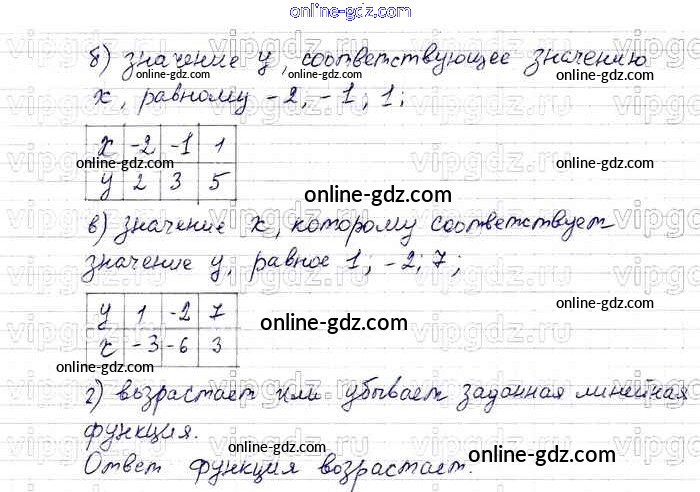 online-gdz.com
б) значение y, соответствующее значению
online-gdz.com
x, равному -2, -1; 1;
online-gdz.com
x -2 -1 1
online-gdz.com
y 2 3 5
online-gdz.com
в) значение x, которому соответствует
значение y, равное 1; -2; 7;
y 1 -2 7
online-gdz.com
x -3 -6 3
online-gdz.com
online-gdz.com
г) возрастает или убывает заданная линейная
функция.
online-gdz.com
online-gdz.com
Ответ функция возрастает.
vipgdz.com